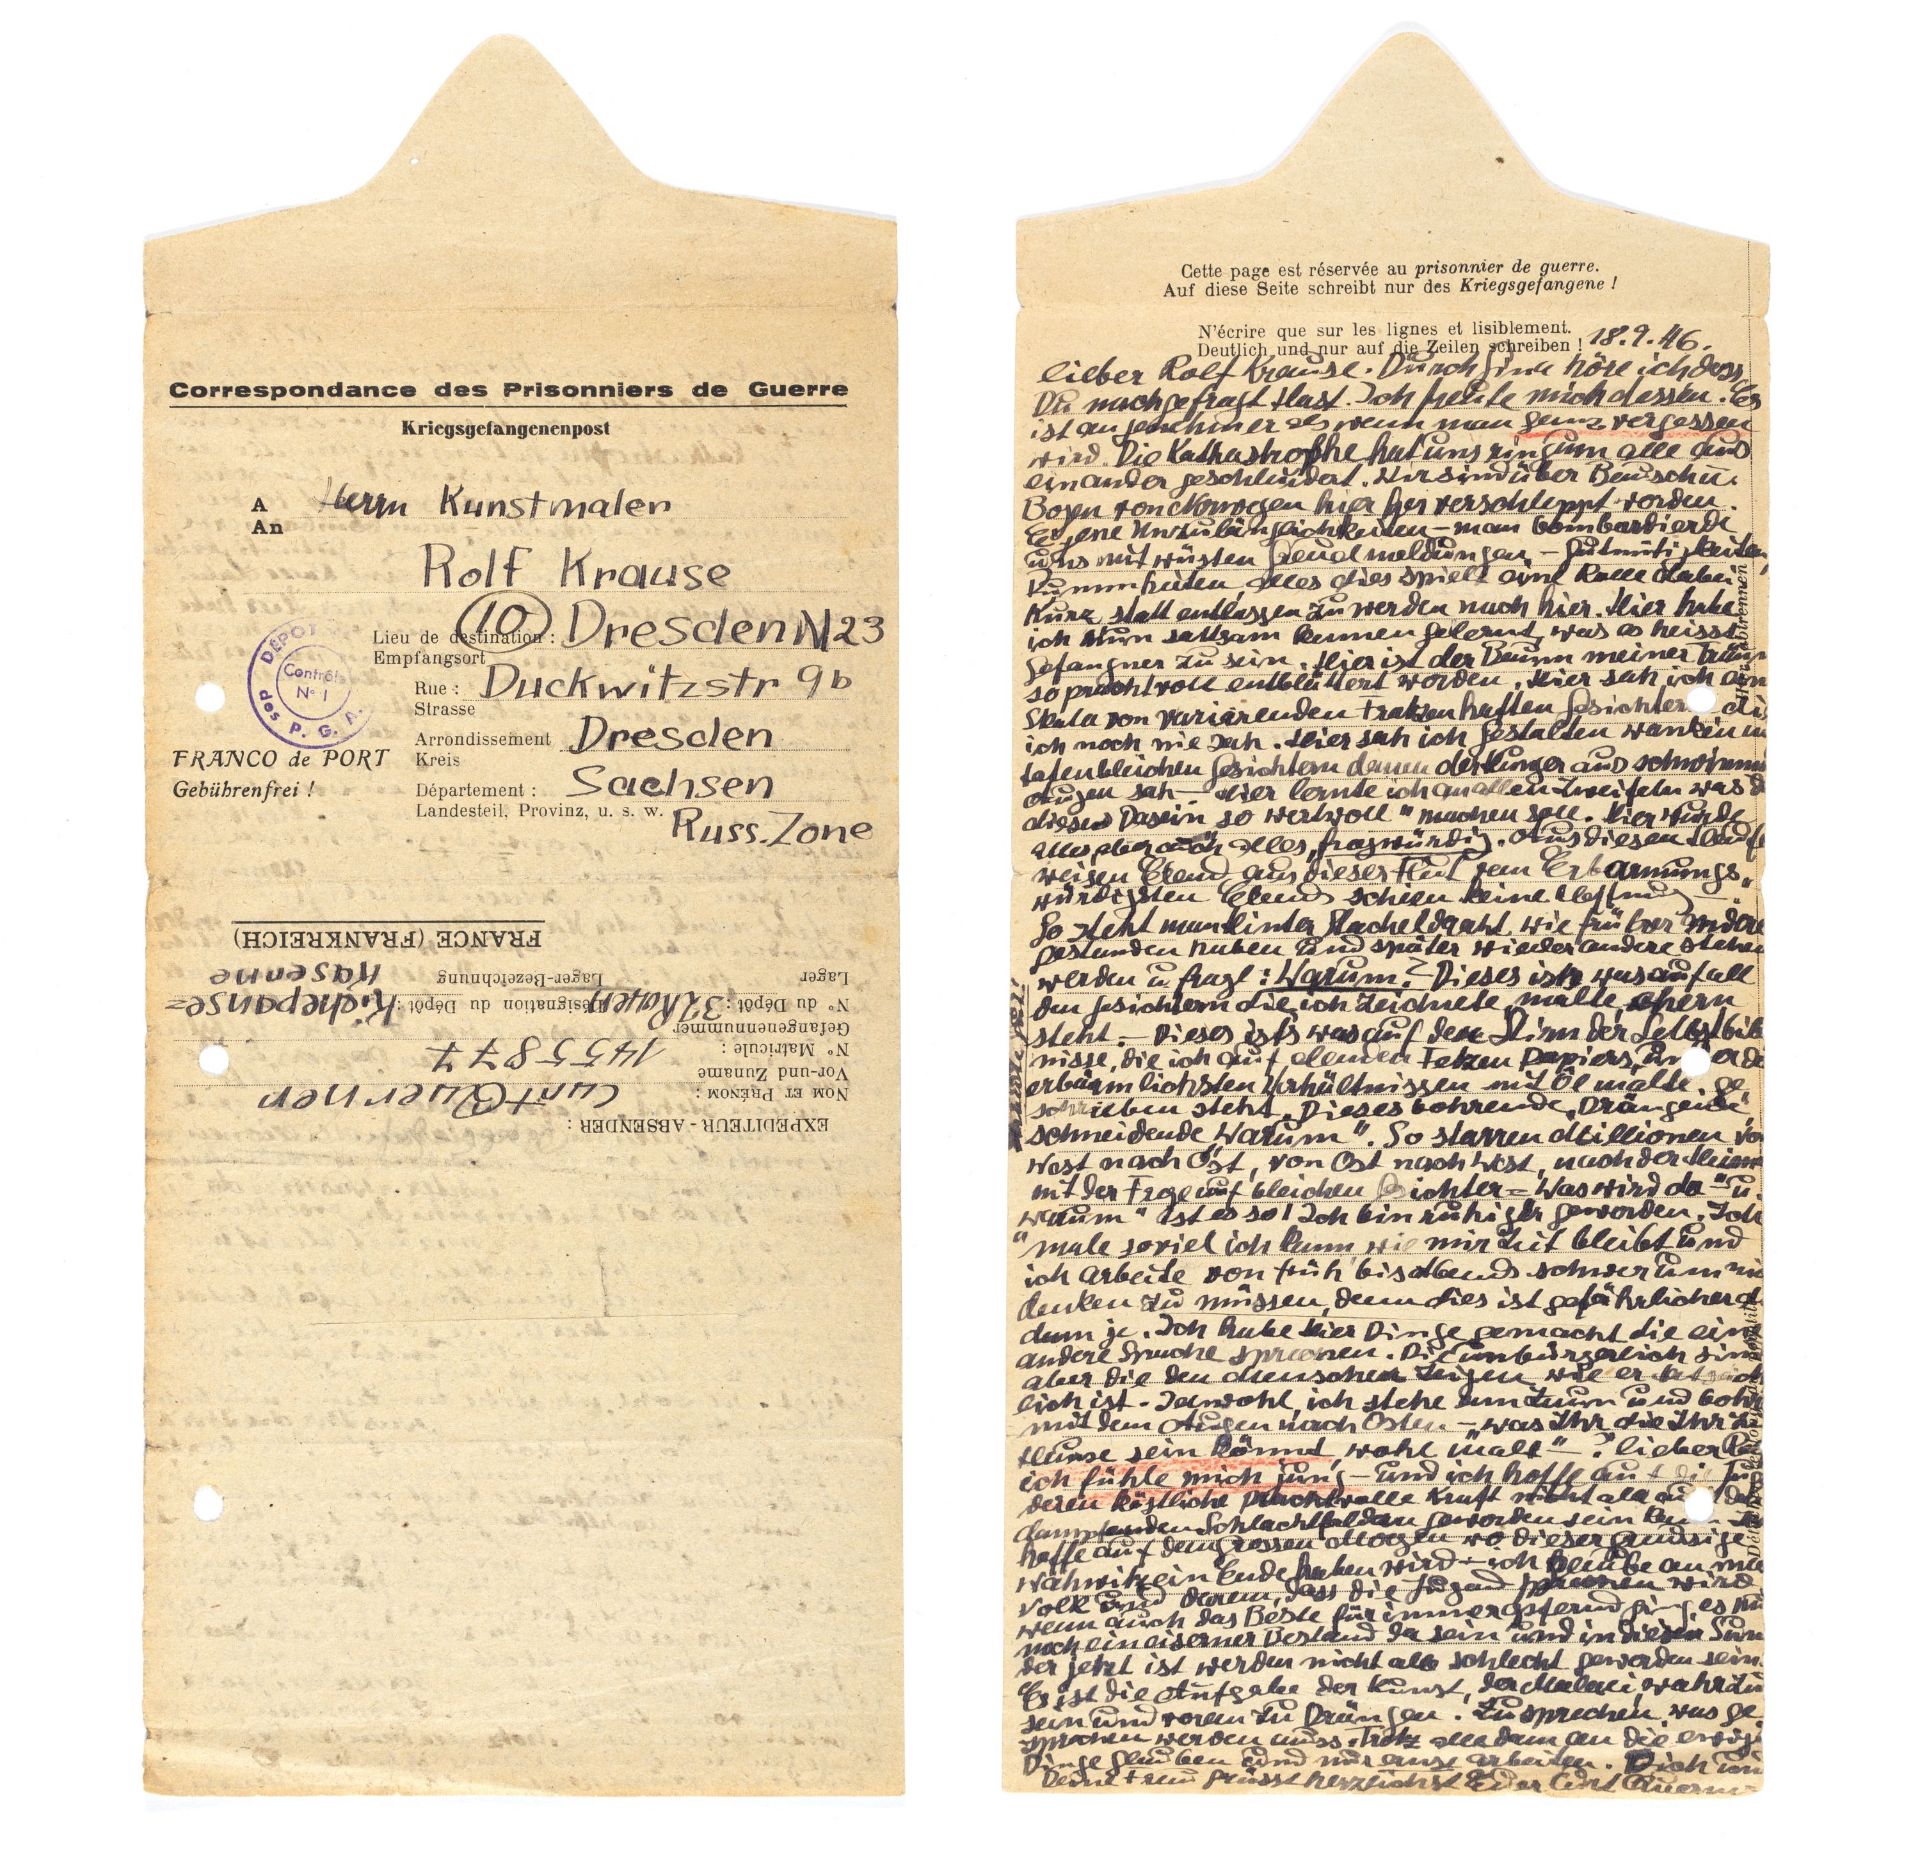 Correspondance des Prisonniers de Guerre
Kriegsgefangenenpost
A
An
Herrn Kunstmaler
Rolf Krause
10
Lieu de destination :
Empfangsort
Dresden N 23
Rue :
Strasse
Duckwitzstr 9b
Arrondissement
Kreis
Dresden
Département :
Landesteil, Provinz, u. s. w.
Sachsen
Russ. Zone
DÉPOT
Contrôle
N° 1
des P. G. A.
FRANCO de PORT
Gebührenfrei !
EXPÉDITEUR - ABSENDER :
NOM ET PRÉNOM :
Vor-und Zuname
Curt Querner
N° Matricule :
Gefangenennummer
1455877
N° du Dépôt : 32 Désignation du Dépôt : Richepanse=
Lager Lager-Bezeichnung Kaserne
FRANCE (FRANKREICH)
Cette page est réservée au prisonnier de guerre.
Auf diese Seite schreibt nur des Kriegsgefangene !
N'écrire que sur les lignes et lisiblement.
Deutlich und nur auf die Zeilen schreiben !
18.9.46.
lieber Rolf Krause. Durch höre ich dass
Du nachgefragt hast. Ich freute mich dessen. Es
ist angenehmer als wenn man ganz vergessen
wird. Die Katastrophe hat uns ringsum alle aus
einander geschleudert. Wir sind über
Bogen von Norwegen hier her verschleppt worden.
Eigene Unzulänglichkeiten – man bombardierte
uns mit wüsten – Gutmütigkeiten
Dummheiten, alles dies spielt eine Rolle dabei
Kurz statt entlassen zu werden nach hier. Hier habe
ich nun sattsam kennen gelernt, was es heisst
Gefangner zu sein. Hier ist der Baum meiner
so prachtvoll entblättert worden. Hier sah ich
Skala von variierenden fratzenhaften Gesichtern
ich noch nie sah. Hier sah ich Gestalten wanken
totenbleichen Gesichtern denen der Hunger aus
Augen sah – Hier lernte ich an allen Zweifeln was
dieses Dasein so wertvoll" machen soll. Hier wurde
alles aber auch alles, fragwürdig. Aus diesem
weisen Elend, aus dieser Flut vom Erbarmungs„
würdigsten Elend schien keine Hoffnung –
So steht man hinter Stacheldraht wie früher andere
gestanden haben und später wieder andere stehen
werden u. fragt: Warum? Dieses ist was auf all
den Gesichtern die ich zeichnete, malte,
steht. – Dieses ists was auf der Stirn der Selbstbild
nisse, die ich auf elenden Fetzen Papiers, unter de
erbärmlichsten Verhältnissen mit Öl malte, ge
schrieben steht. Dieses bohrende, Drängende
schneidende Warum". So starren Millionen
West nach Ost, von Ost nach West, nach der
mit der Frage auf bleichen Gesichter = Was wird da" u.
warum" ist es so! Ich bin ruhiger geworden. Ich
male soviel ich kann wie mir Zeit bleibt und
ich arbeite von früh bis Abends schwer um
denken zu müssen, denn dies ist gefährlicher
denn je. Ich habe hier Dinge gemacht die
andere Sprache sprechen. Die unbürgerlich
aber die den Menschen zeigen wie er
lich ist. Jawohl, ich stehe am Zaun und bohre
mit dem Augen nach Osten – was Ihr die Ihr
Hause sein könnt, wohl malt" – ? lieber
ich fühle mich jung – und ich hoffe auf die
deren köstliche prachtvolle Kraft nicht all auf
dampfenden Schlachtfeldern geworden sein kann
hoffe auf den grossen Morgen wo dieser grausige
Wahnwitz ein Ende haben wird – ich glaube an
Volk und daran, dass die Jugend sprechen wird
wenn auch das Beste für immer ging es
noch ein eiserner Bestand da sein und in diesem
der jetzt ist werden nicht alle schlecht geworden sein.
Es ist die Aufgabe der Kunst, der Malerei, wahr zu
sein und voran zu Drängen. Zu sprechen was ge
sprochen werden muss. Trotz alledem an die
Dinge glauben und nur ernst arbeiten. Dich und
Deine Frau grüsst herzlichst Euer Curt Querner